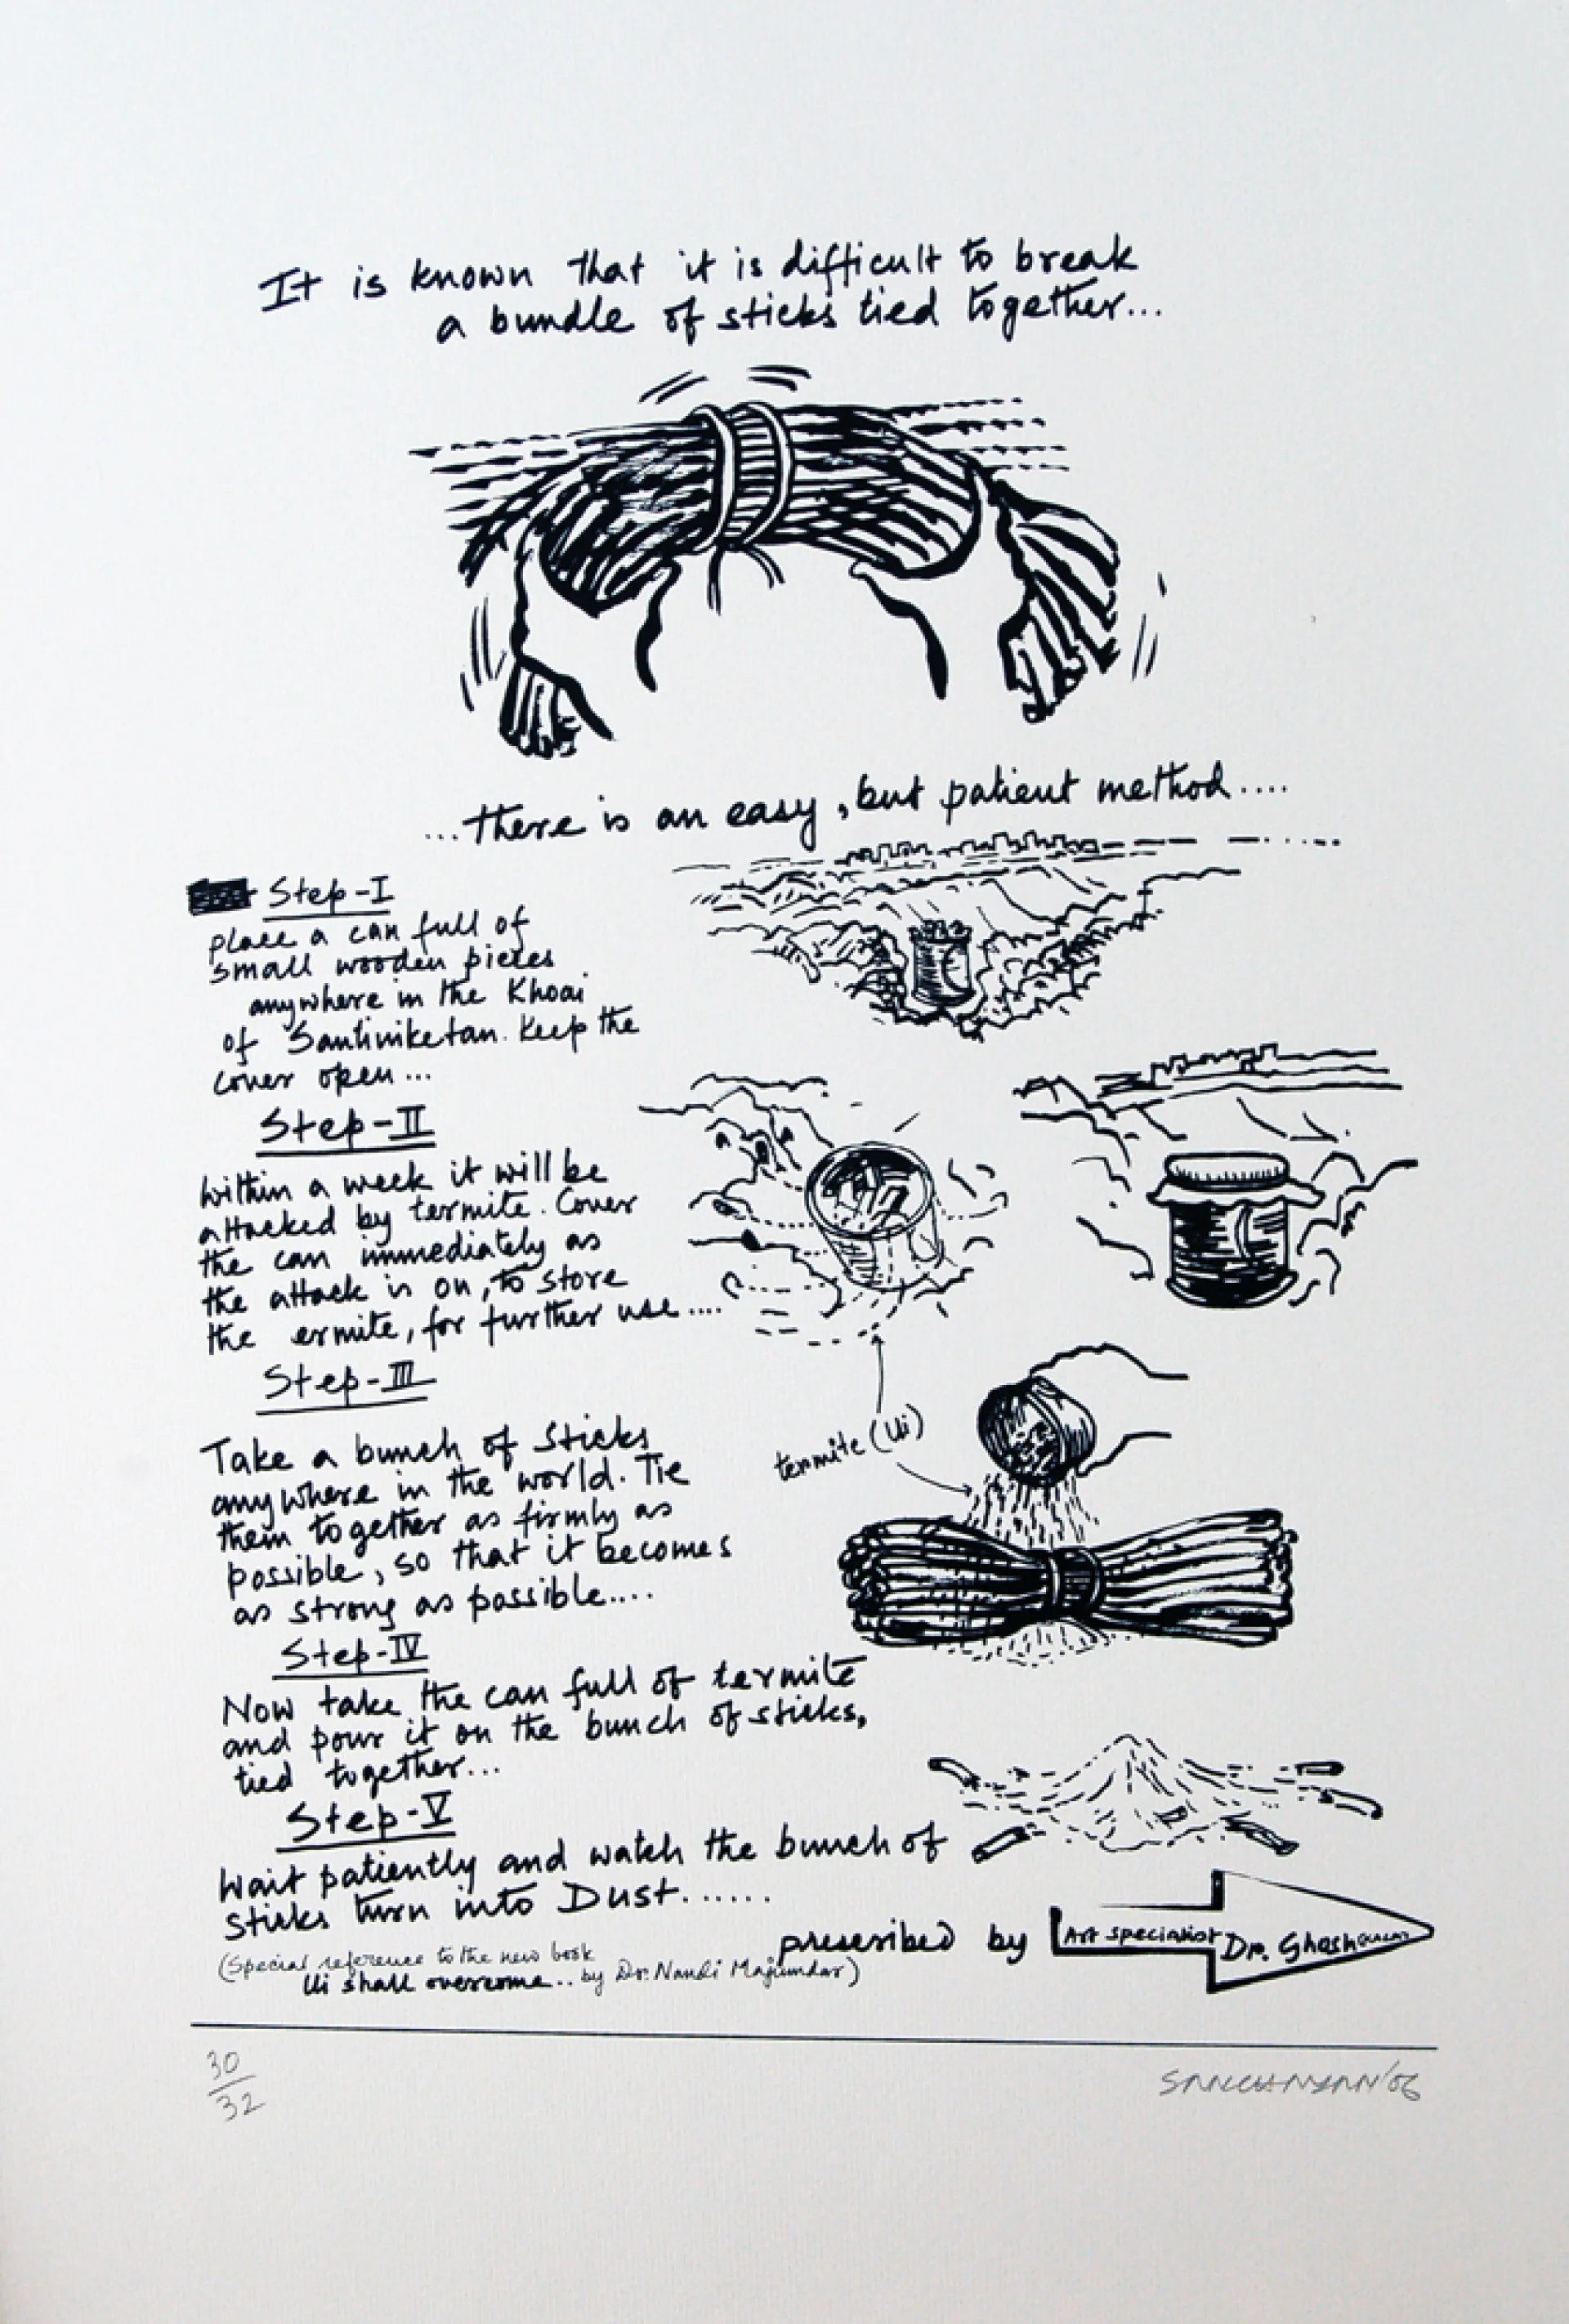 It is known that it is difficult to break
a bundle of sticks tied together...
...there is an easy, but patient method....
Step-I
place a can full of
small wooden pieces
anywhere in the Khoai
of Santiniketan. Keep the
cover open...
Step-II
Within a week it will be
attacked by termite. Cover
the can immediately as
the attack is on, to store
the ermite, for further use....
termite (Ui)
Step-III
Take a bunch of sticks
anywhere in the world. Tie
them together as firmly as
possible, so that it becomes
as strong as possible....
Step-IV
Now take the can full of termite
and pour it on the bunch of sticks,
tied together...
Step-V
Wait patiently and watch the bunch of
sticks turn into Dust......
prescribed by Art specialist Dr.
(Special reference to the new book
Ui shall overcome.. by Dr. Nandi Majumdar)
30
32